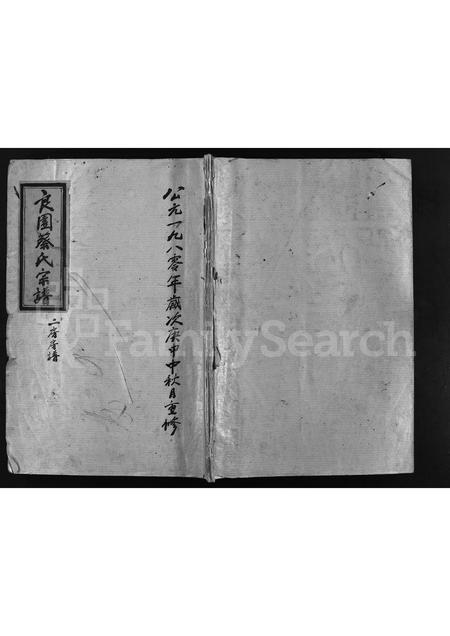 公元一九八零年歲次庚申中秋月重修
良園蔡氏宗譜
二房房譜
FamilySearch